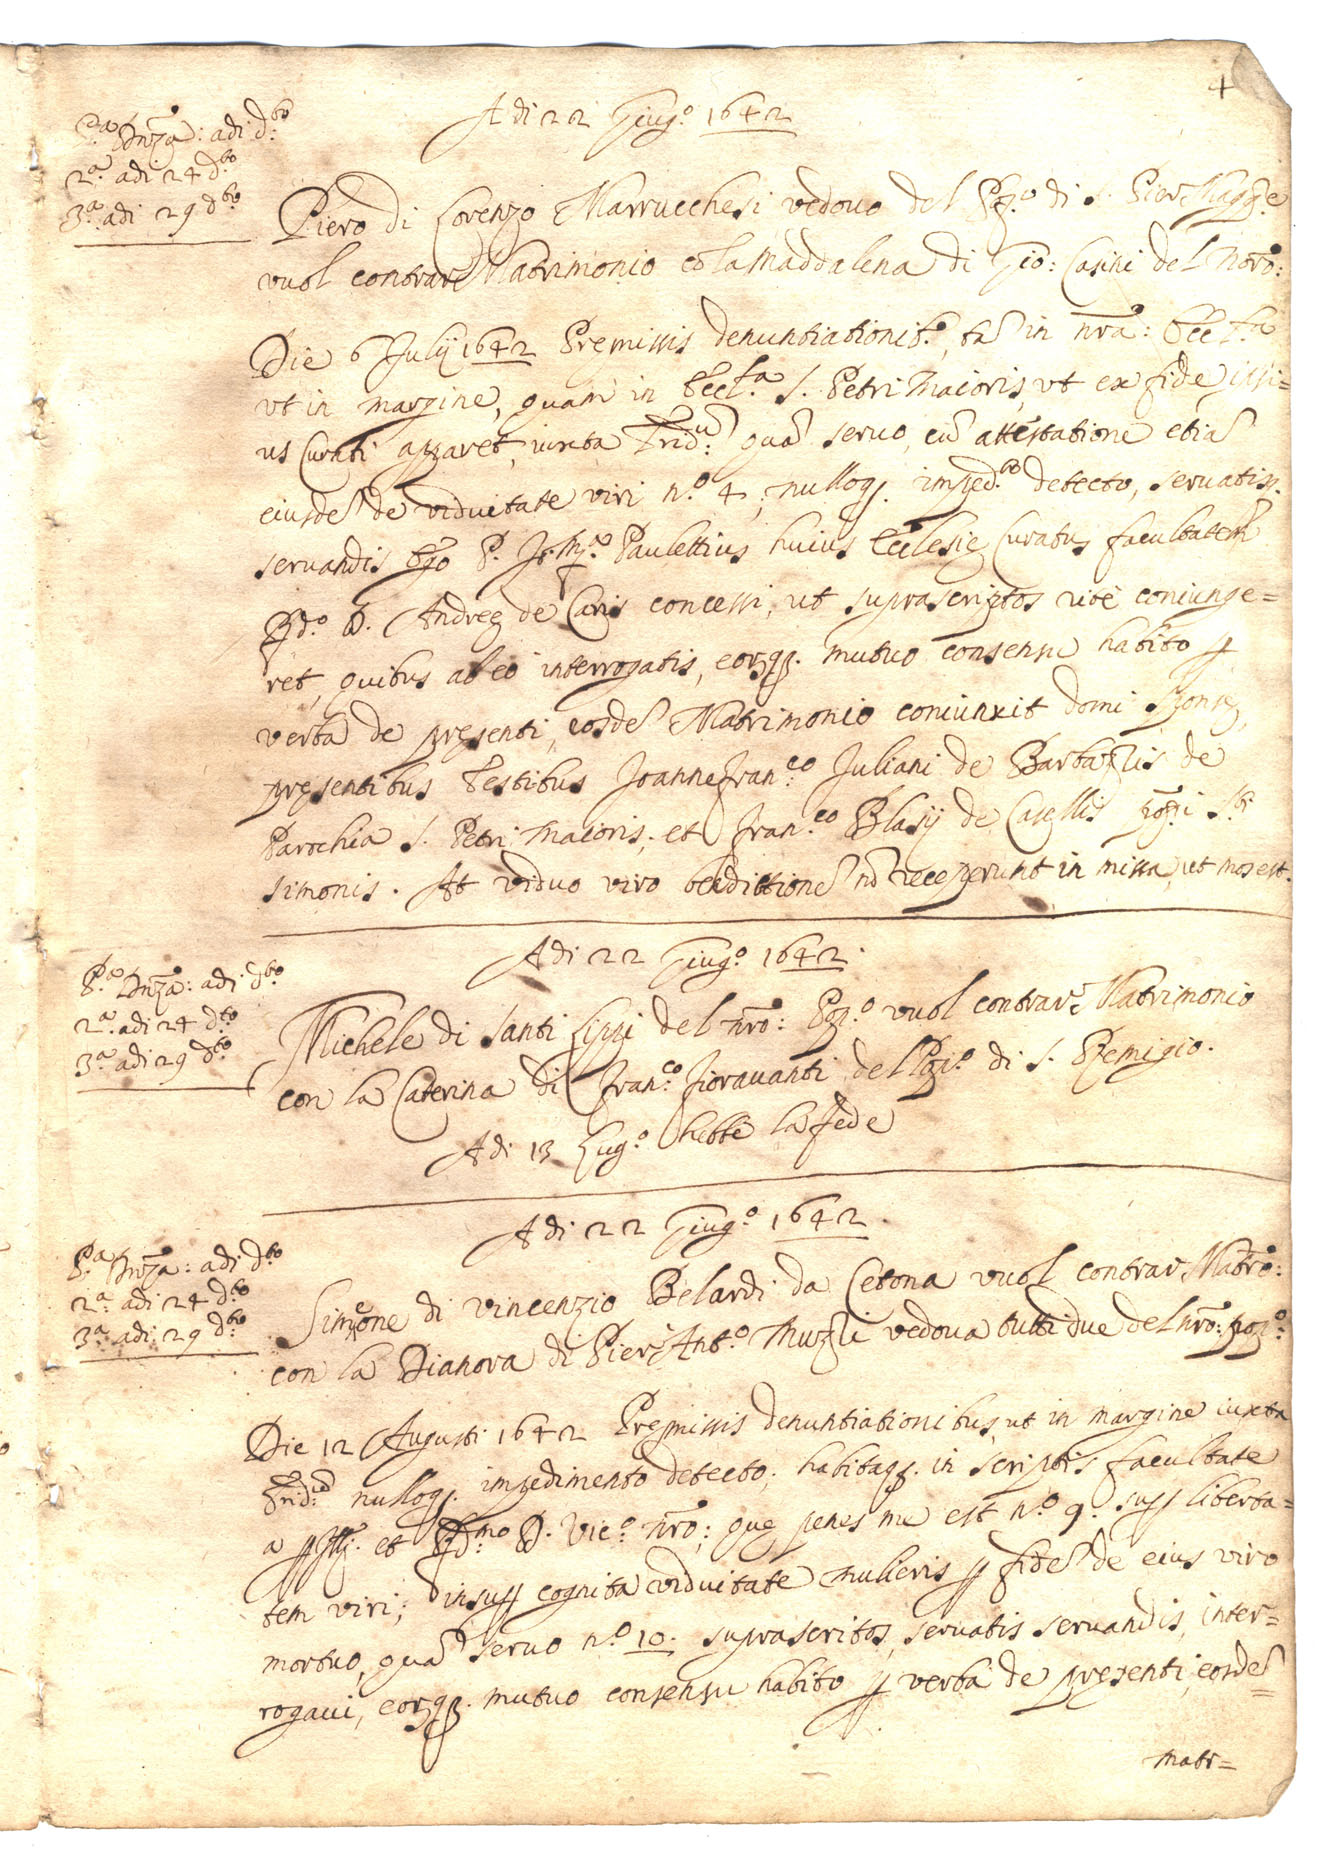 4
Adi 22 Giug.o 1642
P.a Dnza: adi d.to
2.a adi 24 d.to
3.a adi 29 d.to
Piero di Lorenzo Marrucchesi vedovo del Pop.o di S. Pier Magg.e
vuol contrare Matrimonio cõ la Maddalena di Gio: Casini del nro:
Die 6 Julij 1642 Premissis denuntiationib.s, tã in nra: Eccl.a
ut in margine, quam in Eccl.a S. Petri Maioris, ut ex fide ipsi=
us Curati apparet, iuxta Trid.m quã servo, cũ attestatione etiã
eiusdẽ de viduitate viri n.o 4; nulloq. imped.to detecto, servatisq.
servandis Ego P. Paulettius huius Ecclesię Curatus facultatem
D. Andreę de Caris concessi, ut suprascriptos rite coniunge=
ret, quibus ab eo interrogatis, eorq. mutuo consensu habito p
verba de pręsenti, eosdẽ Matrimonio coniunxit domi Sponsę,
pręsentibus testibus Joanne Fran.co Juliani de de
Parochia S. Petri Maioris, et Fran.co Blasij de Casellis S.ti
Simonis. At viduo viro benedittionẽ nõ receperunt in missa, ut mos est.
Adi 22 Giug.o 1642.
P.a Dnza: adi d.to
2.a adi 24 d.to
3.a adi 29 d.to
Michele di Santi Lippi del nro: Pop.o vuol contrarẽ Matrimonio
con la Caterina di Fran.co Fioravanti del Pop.o di S. Remigio.
Adi 13 Lug.o hebbe la fede
Adi 22 Giug.o 1642.
P.a Dnza: adi d.to
2.a adi 24 d.to
3.a adi 29 d.to
Simone di Vincenzio Belardi da Cetona vuol contrar Matro:
con la Dianora di Pier Ant.o vedova tutti due del nro: pop.o
Die 12 Augusti 1642 Premissis denuntiationibus, ut in margine iuxta
Trid.m nulloq. impedimento detecto, habitaq. in scriptis facultate
a et D. Vic.o nro: quę penes me est n.o 9. sup liberta=
tem viri; insup cognita viduitate mulieris p fidẽ de eius viro
mortuo, quã servo n.o 10. suprascritos, servatis servandis, inter=
rogavi, eorq. mutuo consensu habito p verba de pręsenti, eosdẽ
matr=